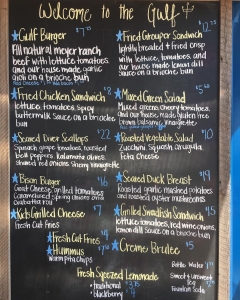 Welcome to the Gulf
Gulf Burger $7.50
All natural meyer ranch
beef with lettuce tomatoes
and our house made garlic
aioli on a brioche bun
Fried Grouper Sandwich $12.75
lightly breaded & fried crisp
with lettuce, tomatoes and
our house made lemon dill
Sauce on a brioche bun
Fried Chicken Sandwich $8
lettuce, tomatoes, spicy
buttermilk Sauce on a brioche
bun
Mixed Green Salad
Mixed greens, Cherry tomatoes,
and our house made gluten free
Seared Diver Scallops $22
Spinach, grape tomatoes, roasted
bell peppers, kalamata olives,
Roasted Vegetable Salad $10
Zucchini, Squash, arugula,
feta Cheese
Bison Burger $16
Goat Cheese, grilled tomatoes
Caramelized onions
on a brioche bun
Seared Duck Breast $19
Roasted garlic mashed potatoes
Kid's Grilled Cheese $7
Fresh Cut Fries
Grilled Swordfish Sandwich $15
lettuce, tomatoes, red wine onions,
lemon dill Sauce on a brioche bun
Fresh Cut Fries $4
Hummus $7
Warm pita chips
Creme Brulee $5
Fresh Squeezed Lemonade
traditional
blackberry
Bottled Water
Sweet & Unsweet
Tea
Fountain Soda